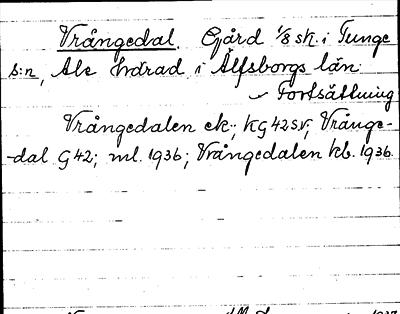 Vrångedal. Gård 1/8 sk. i Tunge
s:n, Ale härad i Älfsborgs län.
Fortsättning
Vrångedalen ek.; KG 42 SV; Vrånge-
-dal G 42; ml. 1936; Vrångedalen kb. 1936.